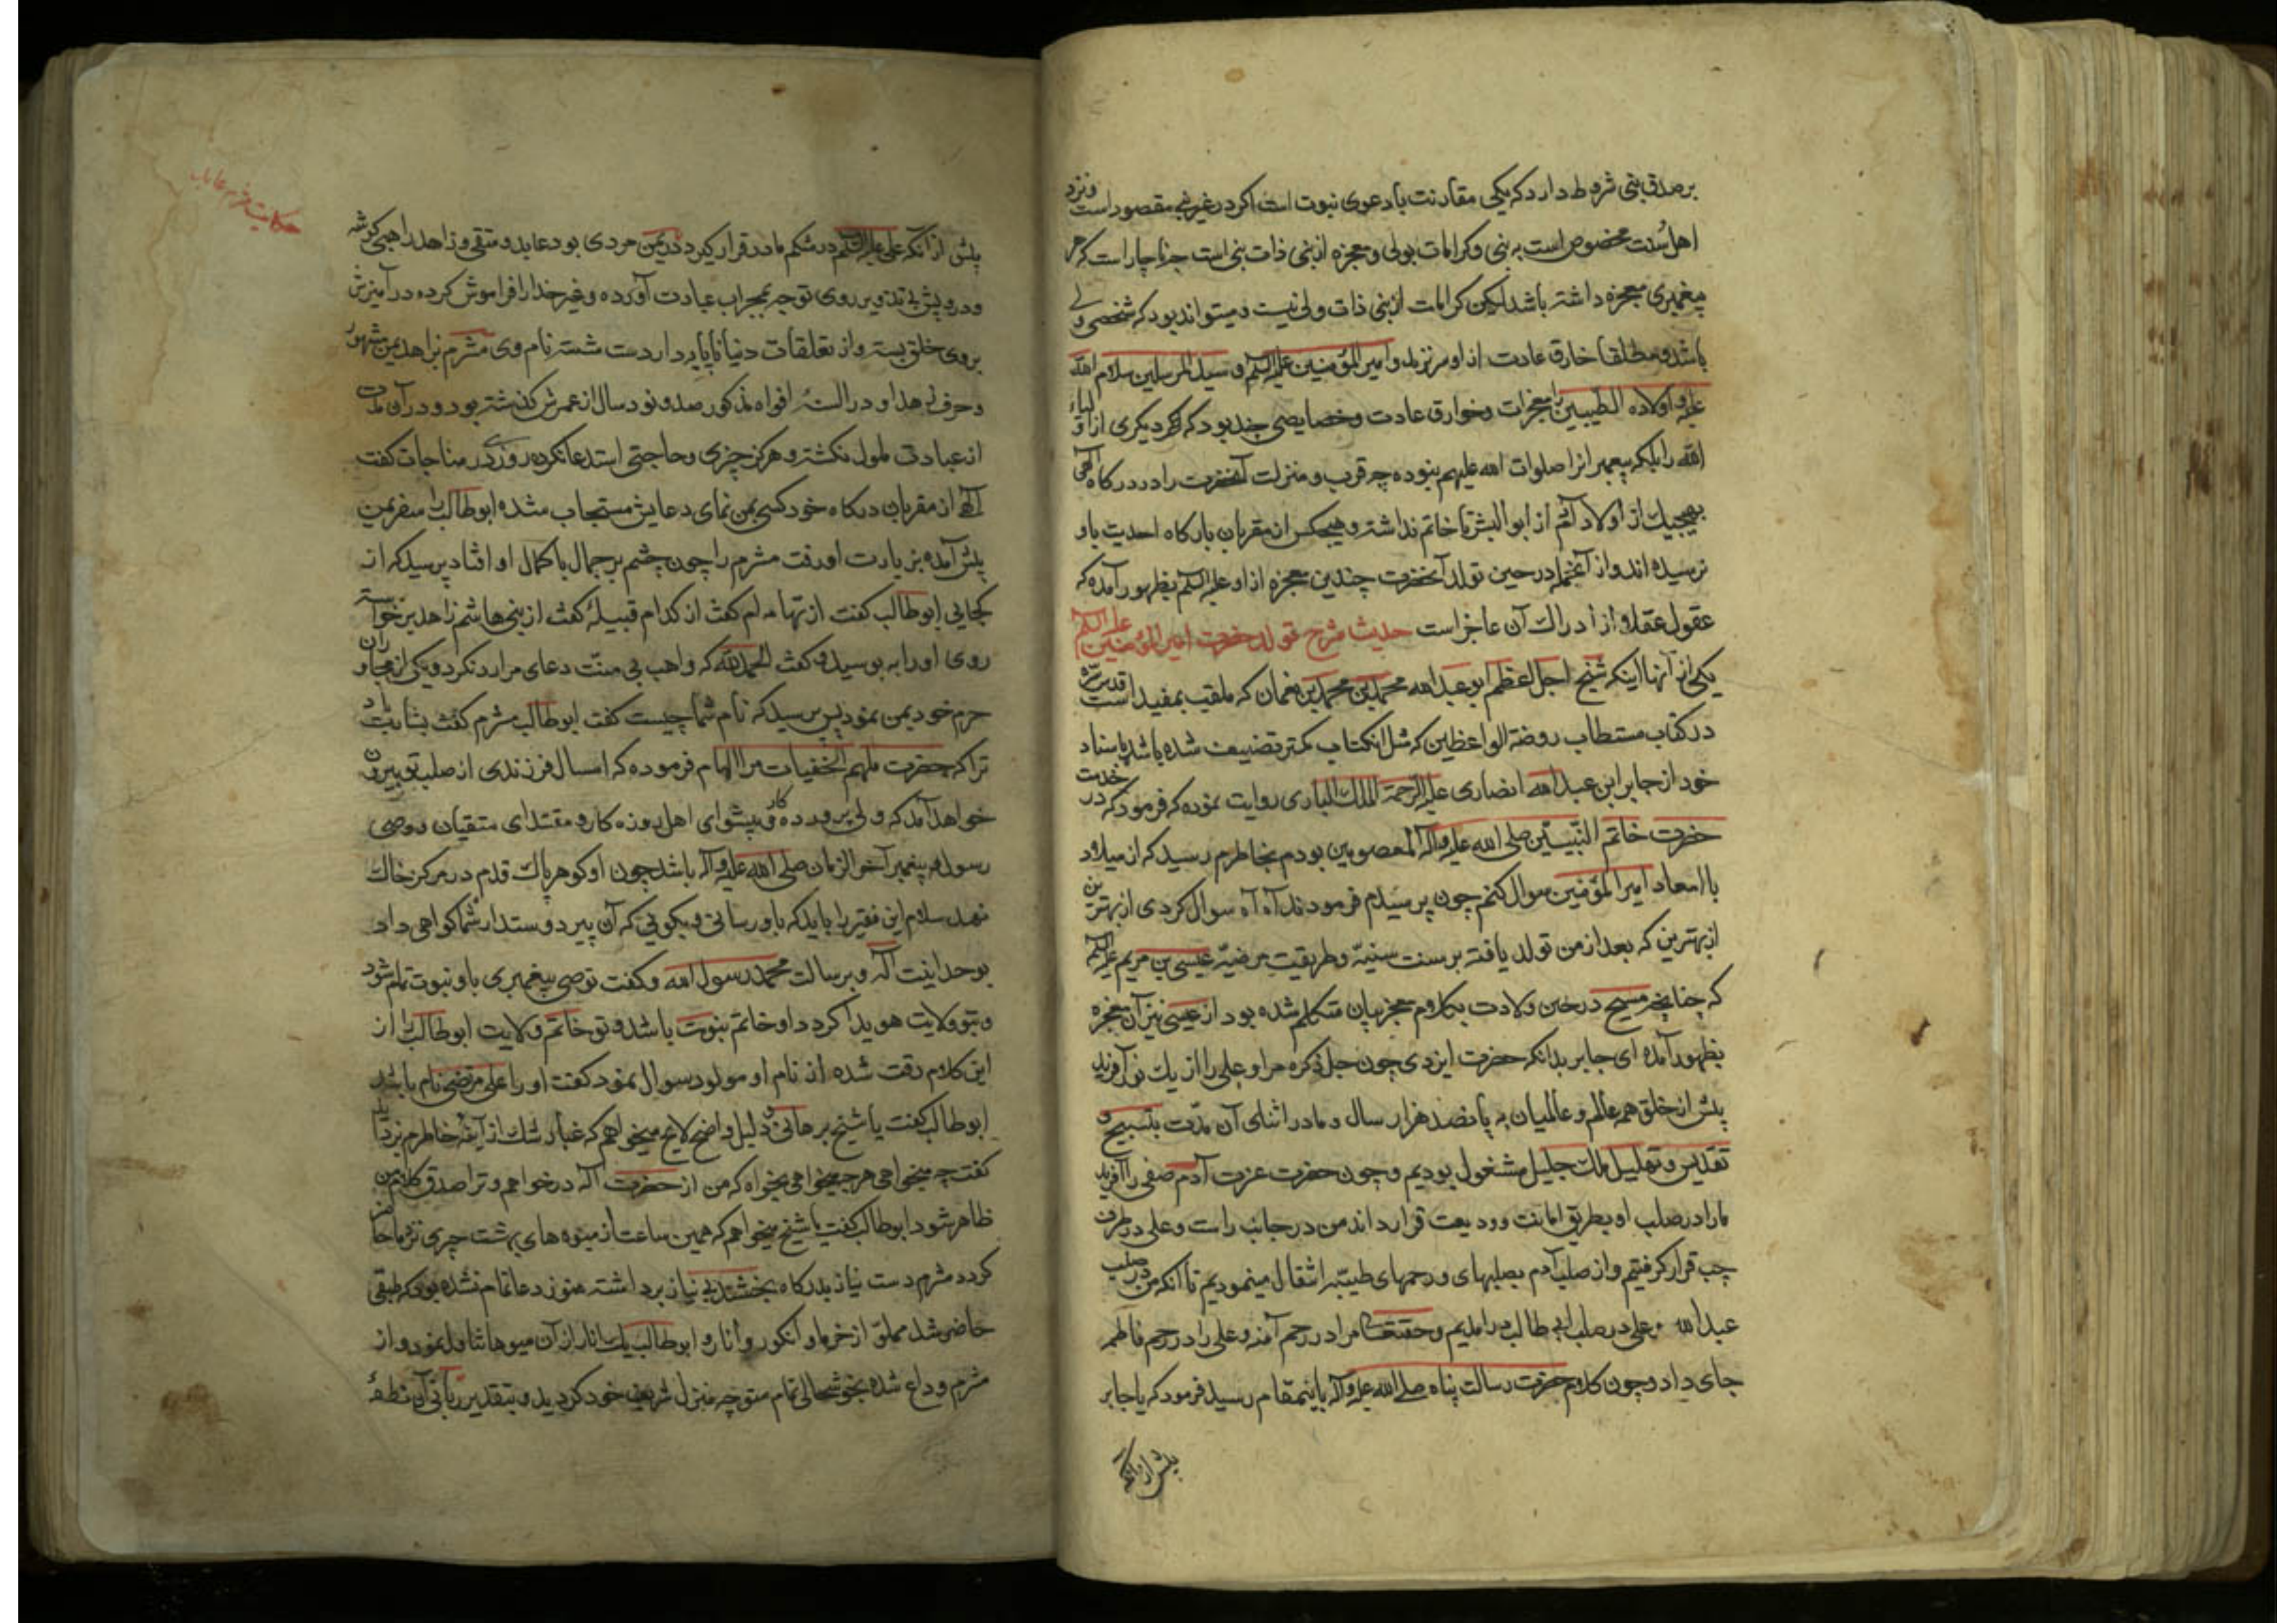 بر صدق نبی شروط دارد که یکی مقارنت با دعوی نبوت است اگر در غیر نبی مقصود است و نزد
اهل سنت مخصوص است به نبی و کرامات بولی و معجزه از بنی ذات بنی است چه ناچار است که هر
پیغمبری معجزه داشته باشد لیکن کرامات از بنی ذات ولی نیست و میتواند بود که شخصی ولی
باشد و مطلقا خارق عادت از او سر نزند و امیر المؤمنین علیه السلم و سید المرسلین سلام الله
علیه و اولاده الطیبین را معجزات و خوارق عادت و خصایصی چند بود که دیگری از اولیاء
الله را بلکه پیغمبرانرا صلوات الله علیهم نبوده چه قرب و منزلت آنحضرت را در درکاه الهی
بهیچیک از اولاد آدم از ابو البشر تا خاتم نداشته و هیچکس از مقربان بارکاه احدیت باو
نرسیده اند و از آنجمله در حین تولد آنحضرت چندین معجزه از او علیه السلم بظهور آمده که
عقول عقلا از ادراک آن عاجز است حدیث شرح تولد حضرت امیر المؤمنین علیه السلم
یکی از آنها اینکه شیخ اجل اعظم ابو عبد الله محمد بن محمد بن نعمان که ملقب بمفید است قدس سره
در کتاب مستطاب روضة الواعظین که مثل آنکتاب کمتر تصنیف شده باشد باسناد
خود از جابر ابن عبد الله انصاری علیه الرحمة الملک الباری روایت نموده که فرمود که در خدمت
حضرت خاتم النبیین صلی الله علیه و آله المعصومین بودم بخاطرم رسید که از میلاد
با اسعاد امیر المؤمنین سوال کنم چون پرسیدم فرمودند آه آه سوال کردی از بهترین
از بهترین که بعد از من تولد یافته بر سنت سنیه و طریقت مرضیه عیسی بن مریم علیه السلم
که چنانچه مسیح در حین ولادت بکلام معجز بیان متکلم شده بود از عیسی نیز آن معجزه
بظهور آمده ای جابر بدانکه حضرت ایزدی چون جل ذکره مرا و علی را از یک نور آفرید
پیش از خلق همه عالم و عالمیان به پانصد هزار سال و ما در اثنای آن مدت بتسبیح و
تقدیس و تهلیل ملک جلیل مشغول بودیم و چون حضرت عزت آدم صفی را آفرید
ما را در صلب او بطریق امانت و ودیعت قرار داند من در جانب راست و علی در طرف
چپ قرار کرفتیم و از صلب آدم بصلبهای و رحمهای طیبه انتقال مینمودیم تا آنکه من در صلب
عبد الله و علی در صلب ابی طالب در امدیم و حقتعالی مرا در رحم آمنه و علی را در رحم فاطمه
جای داد و چون کلام حضرت رسالت پناه صلی الله علیه و آله باینمقام رسید فرمود که یا جابر
پیش از آنکه
حکایت مثرم عابد
پیش از آنکه علی علیه السلم در شکم مادر قرار کیرد در یمن مردی بود عابد و متقی و زاهد راهبی کوشه
و درویش بی تزویر روی توجه بمحراب عبادت آورده و غیر خدا را فراموش کرده در آمیزش
بروی خلق بسته و از تعلقات دنیا ناپایدار دست شسته نام وی مثرم بزاهد یمن مشهور
و حرف زهد او در السنه افواه مذکور صد و نود سال از عمرش کذشته بود و در آن مدت
از عبادت ملول نکشته و هرکز چیزی و حاجتی استدعا نکرده روزی در مناجات کفت
الهی از مقربان درکاه خود کسی بمن نمای دعایش مستجاب شده ابو طالب را سفر یمن
پیش آمده بزیارت او رفت مثرم را چون چشم بر جمال با کمال او افتاد پرسید که از
کجایی ابو طالب کفت از تهامه ام کفت از کدام قبیلهٔ کفت از بنی هاشم زاهد برخواسته
روی او را به بوسید و کفت الحمد لله که واهب بی منت دعای مرا رد نکرد و یکی از مجاوران
حرم خود بمن نمود پس پرسید که نام شما چیست کفت ابو طالب مثرم کفت بشارت باد
ترا که حضرت ملهم الخفیات مرا الهام فرموده که امسال فرزندی از صلب تو بیرون
خواهد آمد که ولی پرورده کار و پیشوای اهل روزه کار و مقتدای متقیان و وصی
رسول پیغمبر آخر الزمان صلی الله علیه و آله باشد چون او کوهر پاک قدم در مرکز خاک
نهد سلام این فقیر را باید که باو رسانی و بکویی که آن پیر دوستدار شما کواهی داد
بوحدانیت اله و برسالت محمد رسول الله و کفت تو وصی پیغمبری باو نبوت تمام شود
و بتو ولایت هویدا کردد او خاتم نبوت باشد و تو خاتم ولایت ابو طالب را از
این کلام رقت شده از نام او مولود سوال نمود کفت او را علی مرتضی نام باشد
ابو طالب کفت یا شیخ برهانی و دلیل واضح لایح میخواهم که غبار شک از آینه خاطرم بزداید
کفت چه میخواهی هر چه میخواهی بخواه که من از حضرت اله درخواهم و ترا صدق کلام من
ظاهر شود ابو طالب کفت یا شیخ میخواهم که همین ساعت از میوه های بهشت چیزی نزد ما حاضر
کردد مثرم دست نیاز بدرکاه بخشنده بی نیاز برداشته هنوز دعا تمام نشده بود که طبقی
حاضر شد مملو از خرما و انکور و انار و ابو طالب یک انار از آن میوها تناول نمود و از
مثرم وداع شده بخوشحالی تمام متوجه منزل شریف خود کردید و بتقدیر ربانی آن نطفهٔ